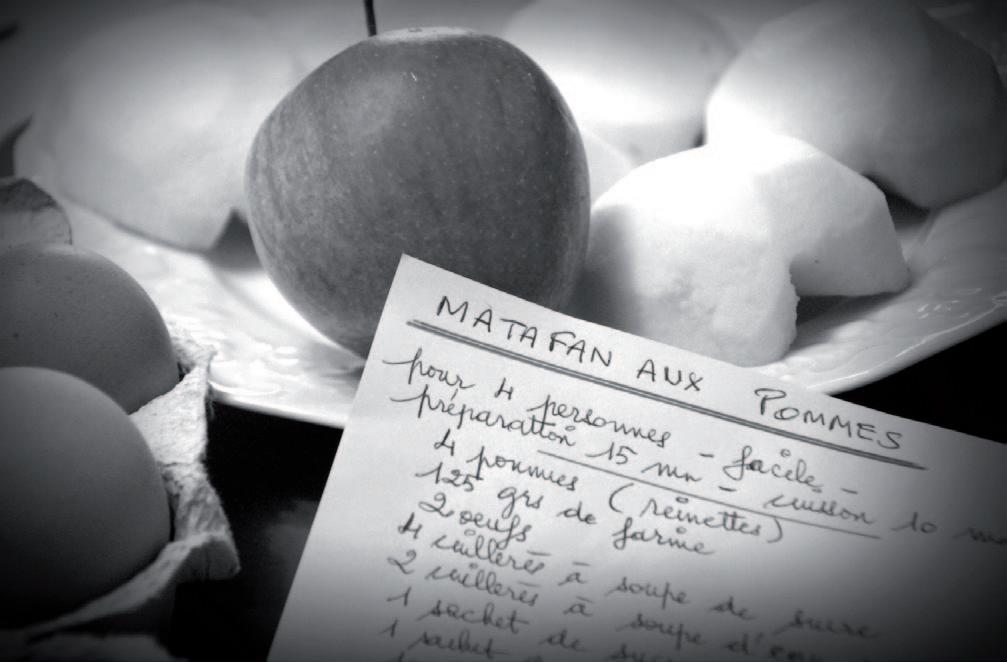 MATAFAN AUX POMMES
pour 4 personnes - facile -
préparation 15 mn - cuisson 10
4 pommes (reinettes)
125 grs de farine
2 oeufs
4 cuillerès à soupe de sucre
2 cuillerès à soupe d'
1 sachet de
1 sachet